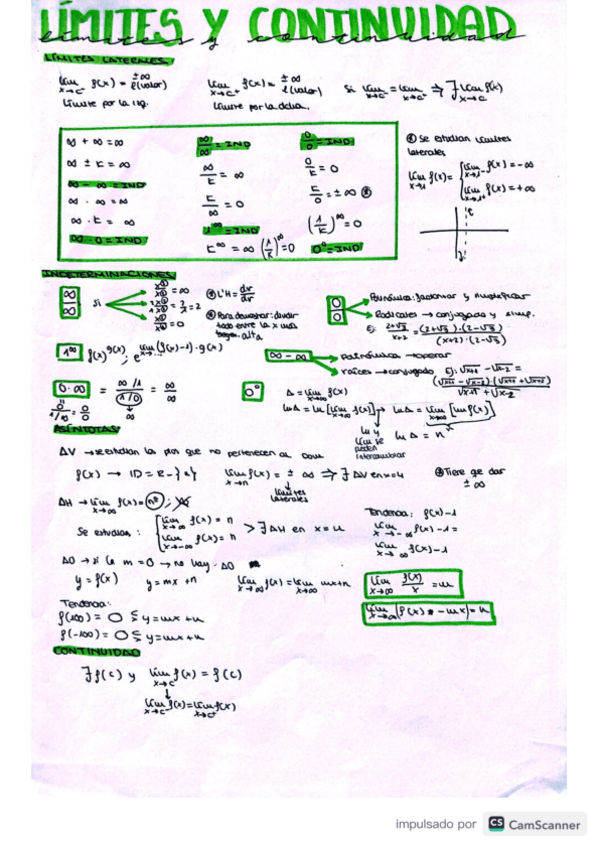 LÍMITES Y CONTINUIDAD
límites y continuidad
LÍMITES LATERALES:
lim x→c⁻ f(x) = ±∞ ℓ(valor)
lim x→c⁺ f(x) = ±∞ ℓ(valor)
Si lim x→c⁻ = lim x→c⁺ ⇒ ∃ lim f(x) x→c
límite por la izq.
límite por la dcha.
∞ + ∞ = ∞
∞ ± k = ∞
∞ - ∞ = IND
∞ · ∞ = ∞
∞ · k = ∞
∞ · 0 = IND
∞/∞ = IND
∞/k = ∞
k/∞ = 0
1^∞ = IND
k^∞ = ∞ (1/k)^∞ = 0
0/0 = IND
0/k = 0
k/0 = ±∞ *
(1/k)^∞ = 0
0⁰ = IND
* Se estudian límites
laterales
lim x→1 f(x) = { lim x→1⁻ f(x) = -∞
lim x→1⁺ f(x) = +∞
INDETERMINACIONES
∞/∞ si
= ∞
= 2/1 = 2
= 0
* L'H = dv/dv
* Para demostrar: dividir
todo entre la x más
alta
0/0
Polinómica: factorizar y simplificar
Radicales → conjugada y simp.
Ej: (2+√3)/(x+2) = (2+√3)·(2-√3)/(x+2)·(2-√3)
1^∞ f(x)^g(x) ; e^lim x→∞ (f(x)-1)·g(x)
∞ - ∞
polinómica → operar
raíces → conjugado
0·∞ = (∞/1)/(1/0) = ∞/∞
0/1/∞ = 0/0
0⁰
A = lim x→∞ f(x)
ln A = ln [lim x→∞ f(x)] → ln A = lim x→∞ [ln f(x)]
ln y
lim se
pueden
intercambiar
ln A = n
ASÍNTOTAS
AV → se estudian los ptos que no pertenecen al dom
f(x) → D = R - {n}
lim x→n f(x) = ±∞ ⇒ ∃ AV en x=n
límites
laterales
* Tiene que dar
±∞
AH → lim x→∞ f(x) = nº ;
Se estudian : lim x→∞ f(x) = n
lim x→-∞ f(x) = n
> ∃ AH en x = n
Tendencia: f(x)-1
lim x→-∞ f(x)-1 =
lim x→∞ f(x)-1
AO → si la m = 0 → no hay AO
y = f(x)
y = mx + n
lim x→∞ f(x) = lim x→∞ mx+n
lim x→∞ f(x)/x = m
lim x→∞ (f(x) - mx) = n
Tendencia:
f(100) = O ≶ y = mx + n
f(-100) = O ≶ y = mx + n
CONTINUIDAD
∃ f(c) y lim x→c f(x) = f(c)
lim x→c⁻ f(x) = lim x→c⁺ f(x)
impulsado por CS CamScanner